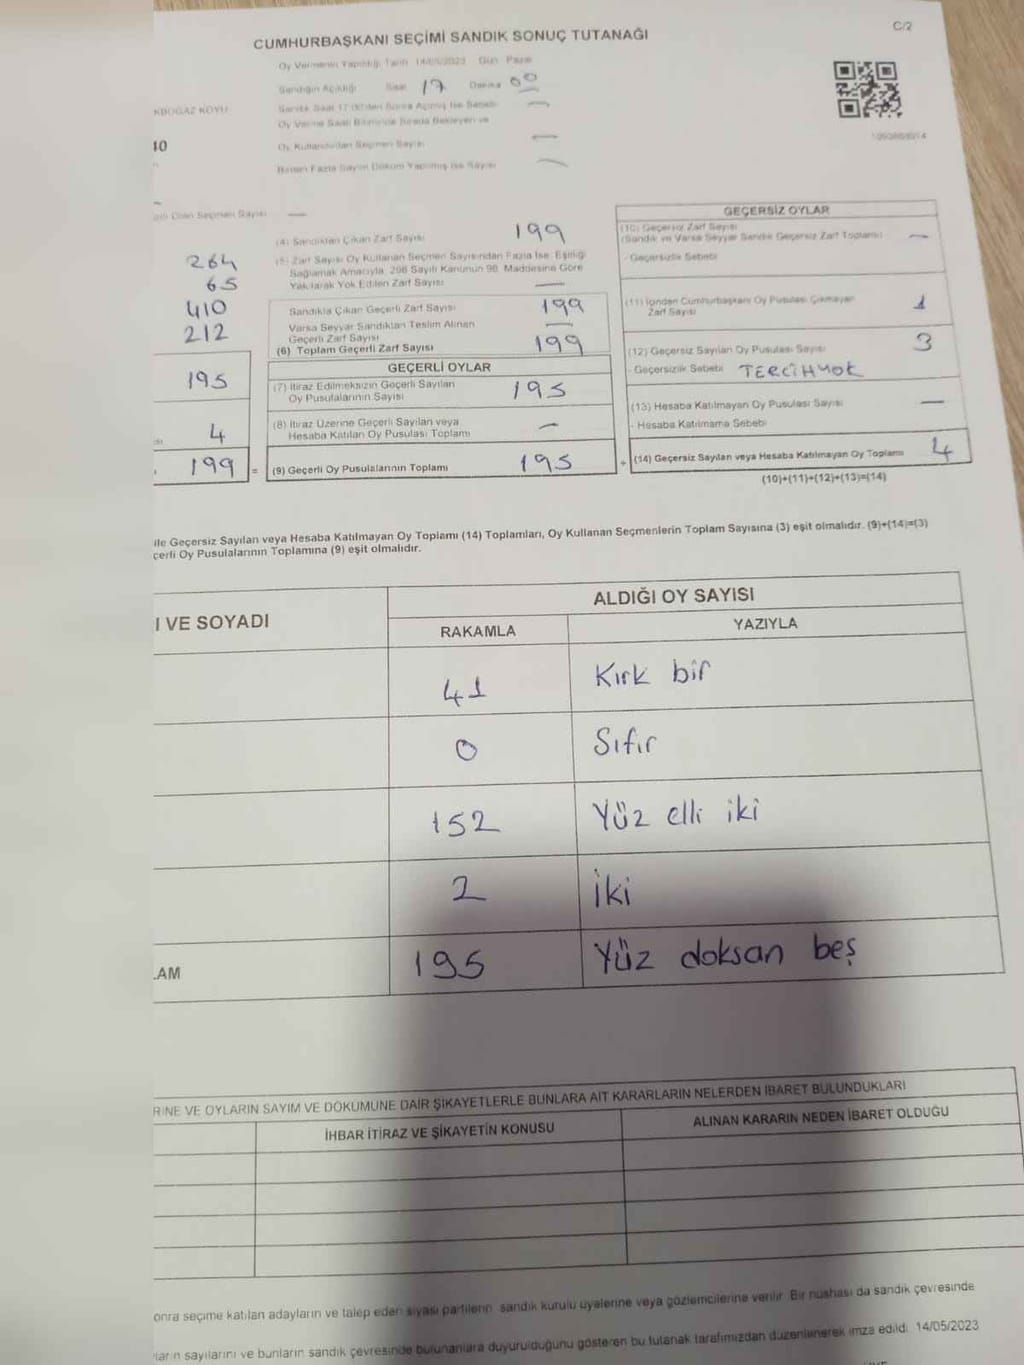 C/2
CUMHURBAŞKANI SEÇİMİ SANDIK SONUÇ TUTANAĞI
Oy Vermenin Yapıldığı Tarih 14/05/2023 Gün Pazar
Sandığın Açıldığı Saat 17 Dakika 00
KBOĞAZ KÖYÜ
Oy Kullandırılan Seçmen Sayısı —
Birden Fazla Sayım Döküm Yapılmış İse Sayısı —
(4) Sandıktan Çıkan Zarf Sayısı 199
(5) Zarf Sayısı Oy Kullanan Seçmen Sayısından Fazla İse, Eşitliği
Sağlamak Amacıyla, 298 Sayılı Kanunun 98. Maddesine Göre
Yakılarak Yok Edilen Zarf Sayısı —
264
65
410
212
195
4
199
Sandıkta Çıkan Geçerli Zarf Sayısı 199
Varsa Seyyar Sandıktan Teslim Alınan
Geçerli Zarf Sayısı —
(6) Toplam Geçerli Zarf Sayısı 199
GEÇERLİ OYLAR
(7) İtiraz Edilmeksizin Geçerli Sayılan
Oy Pusulalarının Sayısı 195
(8) İtiraz Üzerine Geçerli Sayılan veya
Hesaba Katılan Oy Pusulası Toplamı —
= (9) Geçerli Oy Pusulalarının Toplamı 195
GEÇERSİZ OYLAR
(10) Geçersiz Zarf Sayısı
(Sandık ve Varsa Seyyar Sandık Geçersiz Zarf Toplamı) —
- Geçersizlik Sebebi
(11) İçinden Cumhurbaşkanı Oy Pusulası Çıkmayan
Zarf Sayısı 1
(12) Geçersiz Sayılan Oy Pusulası Sayısı 3
- Geçersizlik Sebebi TERCİHYOK
(13) Hesaba Katılmayan Oy Pusulası Sayısı —
- Hesaba Katılmama Sebebi
+ (14) Geçersiz Sayılan veya Hesaba Katılmayan Oy Toplamı 4
(10)+(11)+(12)+(13)=(14)
ile Geçersiz Sayılan veya Hesaba Katılmayan Oy Toplamı (14) Toplamları, Oy Kullanan Seçmenlerin Toplam Sayısına (3) eşit olmalıdır. (9)+(14)=(3)
çerli Oy Pusulalarının Toplamına (9) eşit olmalıdır.
I VE SOYADI
ALDIĞI OY SAYISI
RAKAMLA YAZIYLA
41 Kırk bir
0 Sıfır
152 Yüz elli iki
2 İki
LAM 195 Yüz doksan beş
RİNE VE OYLARIN SAYIM VE DÖKÜMÜNE DAİR ŞİKAYETLERLE BUNLARA AİT KARARLARIN NELERDEN İBARET BULUNDUKLARI
İHBAR İTİRAZ VE ŞİKAYETİN KONUSU ALINAN KARARIN NEDEN İBARET OLDUĞU
onra seçime katılan adayların ve talep eden siyasi partilerin sandık kurulu üyelerine veya gözlemcilerine verilir. Bir nüshası da sandık çevresinde
ların sayılarını ve bunların sandık çevresinde bulunanlara duyurulduğunu gösteren bu tutanak tarafımızdan düzenlenerek imza edildi. 14/05/2023